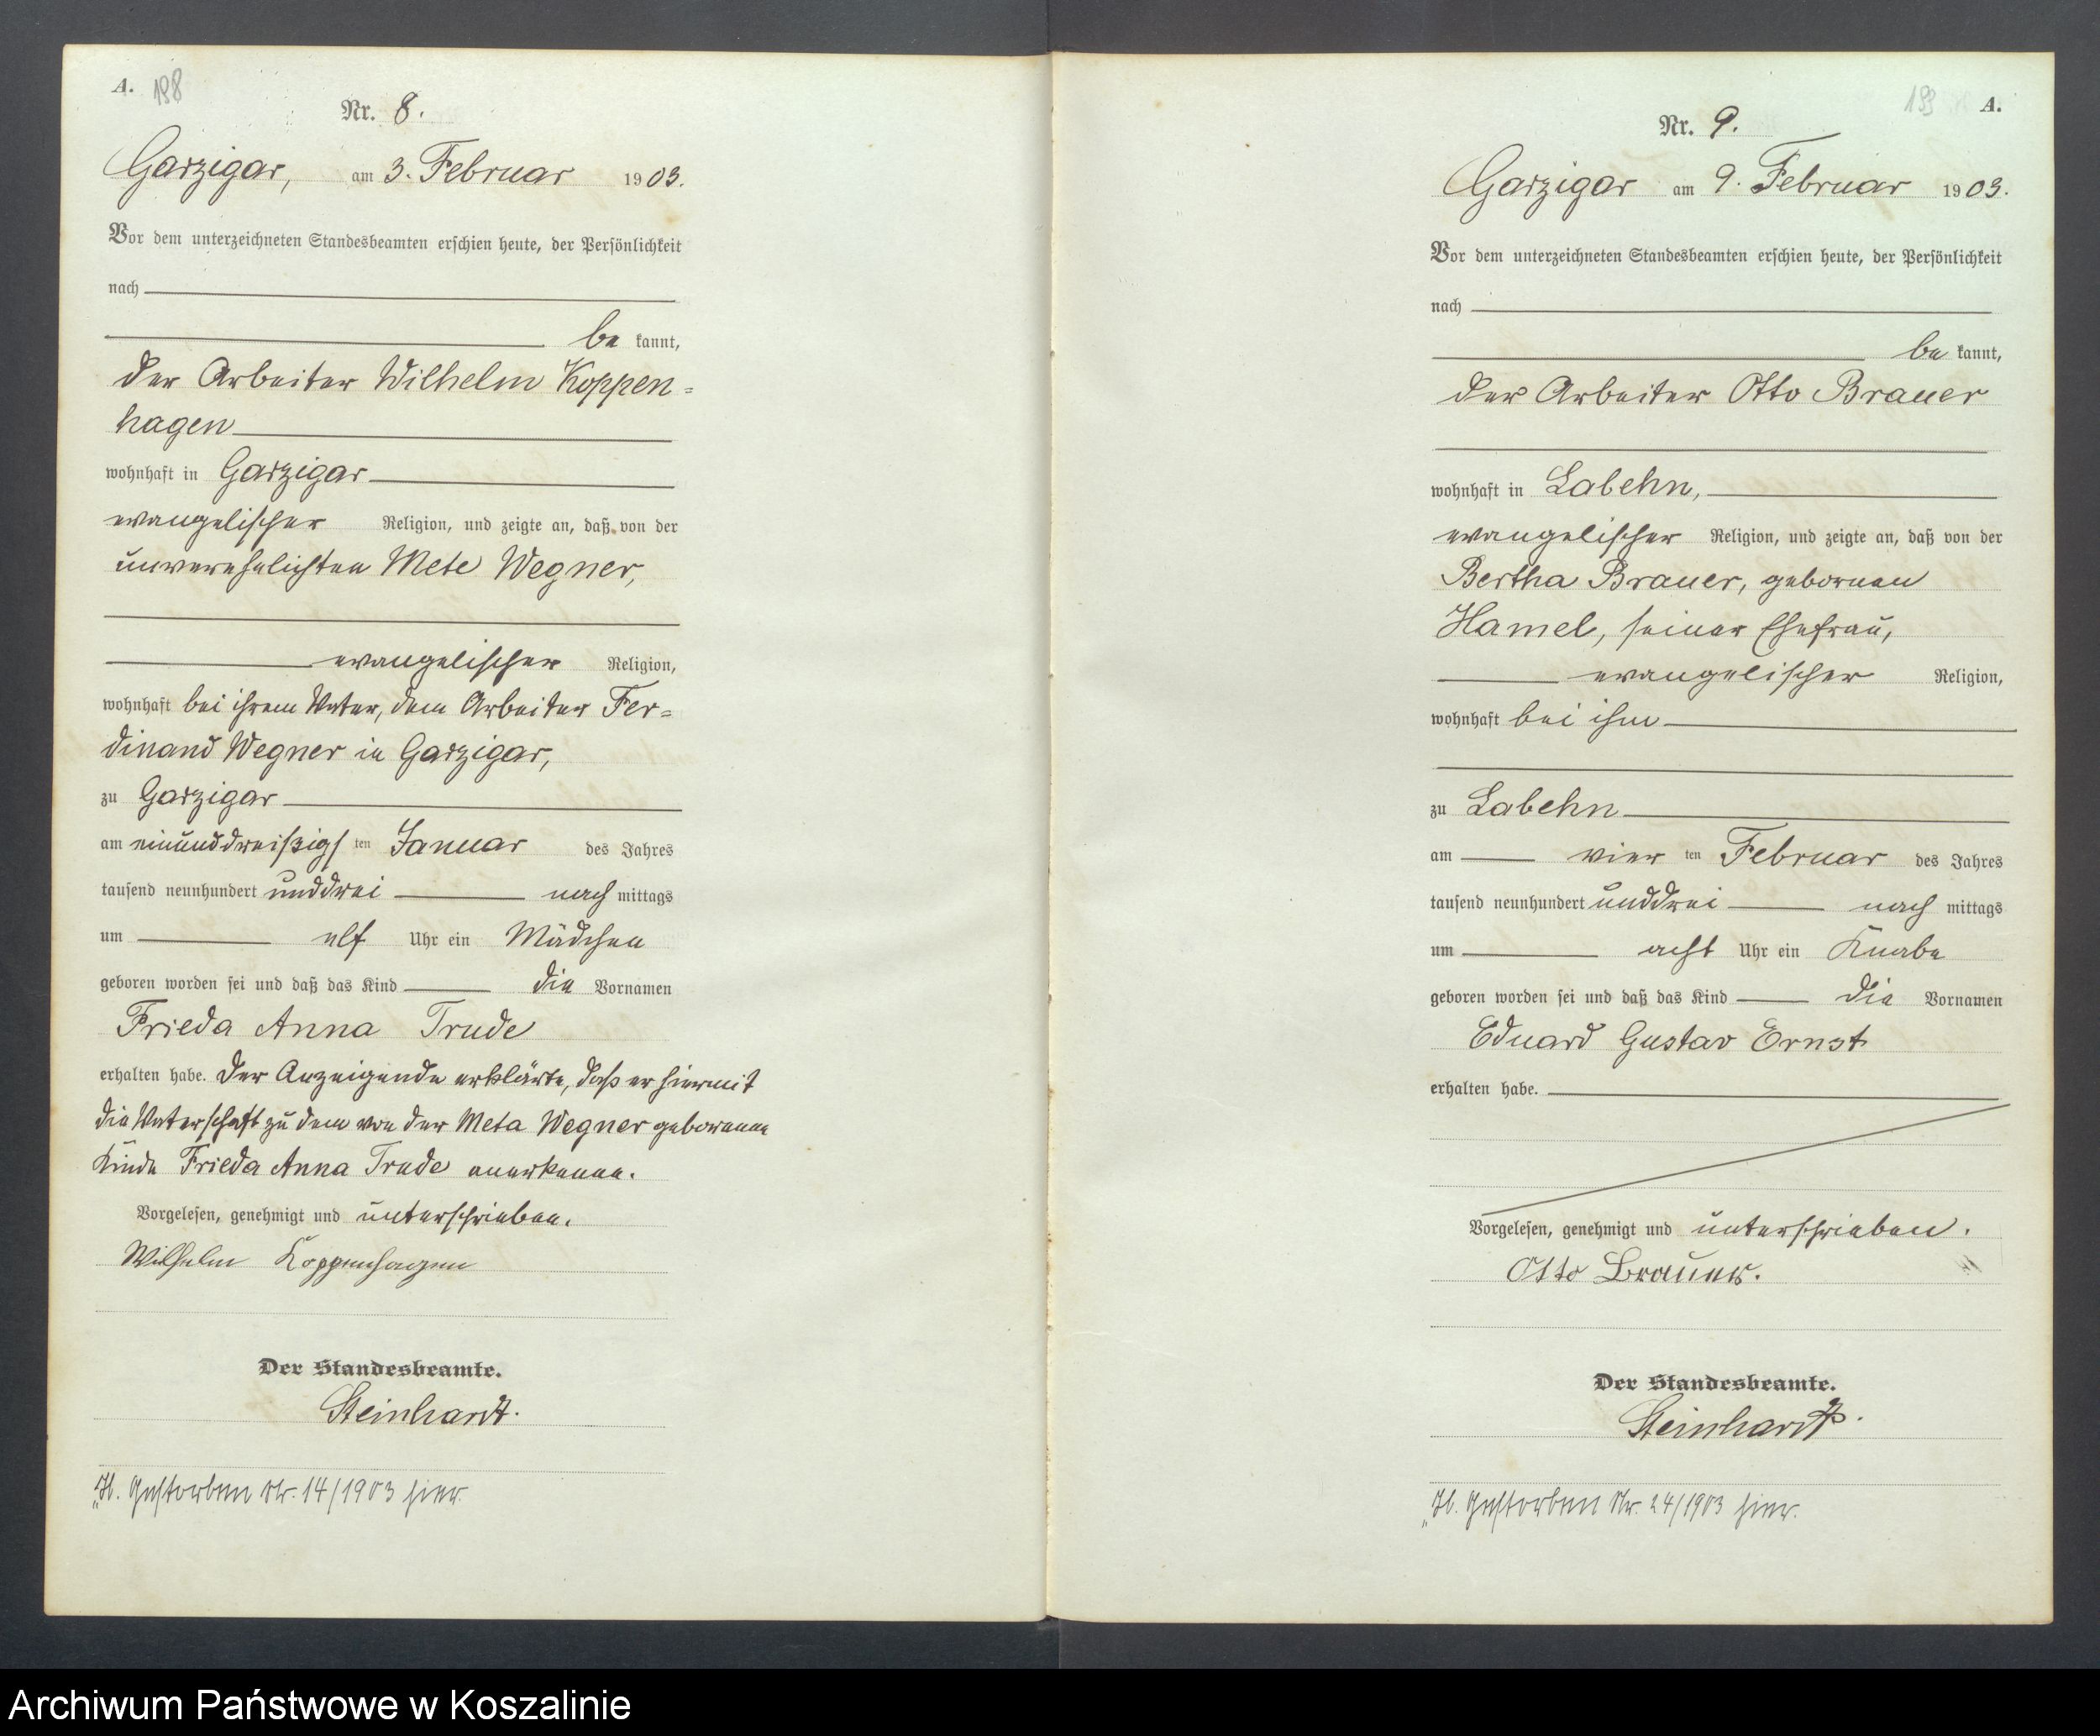 A. 198
Nr. 8.
Garzigar, am 3. Februar 1903.
Vor dem unterzeichneten Standesbeamten erschien heute, der Persönlichkeit
nach
be kannt,
der Arbeiter Wilhelm Koppen=
hagen
wohnhaft in Garzigar
evangelischer Religion, und zeigte an, daß von der
unverehelichten Mete Wegner,
evangelischer Religion,
wohnhaft bei ihrem Vater, dem Arbeiter Fer=
dinand Wegner in Garzigar,
zu Garzigar
am einunddreißigs ten Januar des Jahres
tausend neunhundert unddrei nach mittags
um elf Uhr ein Mädchen
geboren worden sei und daß das Kind die Vornamen
Frieda Anna Trude
erhalten habe. Der Anzeigende erklärte, daß er hiermit
die Vaterschaft zu dem von der Meta Wegner geborenen
Kinde Frieda Anna Trude anerkenne.
Vorgelesen, genehmigt und unterschrieben.
Wilhelm Koppenhagen
Der Standesbeamte.
Steinhardt.
H. Gestorben Nr. 14/1903 hier.
199 A.
Nr. 9.
Garzigar am 9. Februar 1903.
Vor dem unterzeichneten Standesbeamten erschien heute, der Persönlichkeit
nach
be kannt,
der Arbeiter Otto Brauer
wohnhaft in Labehn,
evangelischer Religion, und zeigte an, daß von der
Bertha Brauer, geborenen
Hamel, seiner Ehefrau,
evangelischer Religion,
wohnhaft bei ihm
zu Labehn
am vier ten Februar des Jahres
tausend neunhundert unddrei nach mittags
um acht Uhr ein Knabe
geboren worden sei und daß das Kind die Vornamen
Eduard Gustav Ernst
erhalten habe.
Vorgelesen, genehmigt und unterschrieben.
Otto Brauer.
Der Standesbeamte.
Steinhardt.
H. Gestorben Nr. 24/1903 hier.
Archiwum Państwowe w Koszalinie